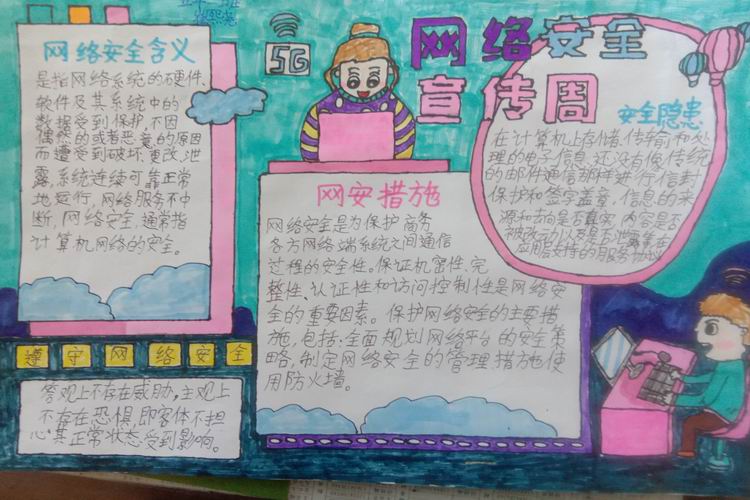 5G
网络安全
宣传周
网络安全含义
是指网络系统的硬件、
软件及其系统中的
数据受到保护,不因
偶然的或者恶意的原因
而遭受到破坏.更改.泄
露,系统连续可靠正常
地运行,网络服务不中
断,网络安全,通常指
计算机网络的安全。
遵守网络安全
客观上不存在威胁,主观上
不存在恐惧.即客体不担
心其正常状态受到影响。
网安措施
网络安全是为保护商务
各方网络端系统之间通信
过程的安全性。保证机密性、完
整性、认证性和访问控制性是网络安
全的重要因素。保护网络安全的主要措
施,包括:全面规划网络平台的安全策
略,制定网络安全的管理措施使
用防火墙。
安全隐患
在计算机上存储.传输和处
理的电子信息,还没有像传统
的邮件通信那样进行信封
保护和签字盖章,信息的来
源和去向是否真实,内容是否
被改动以及是否泄露等在
应用层支持的服务协议